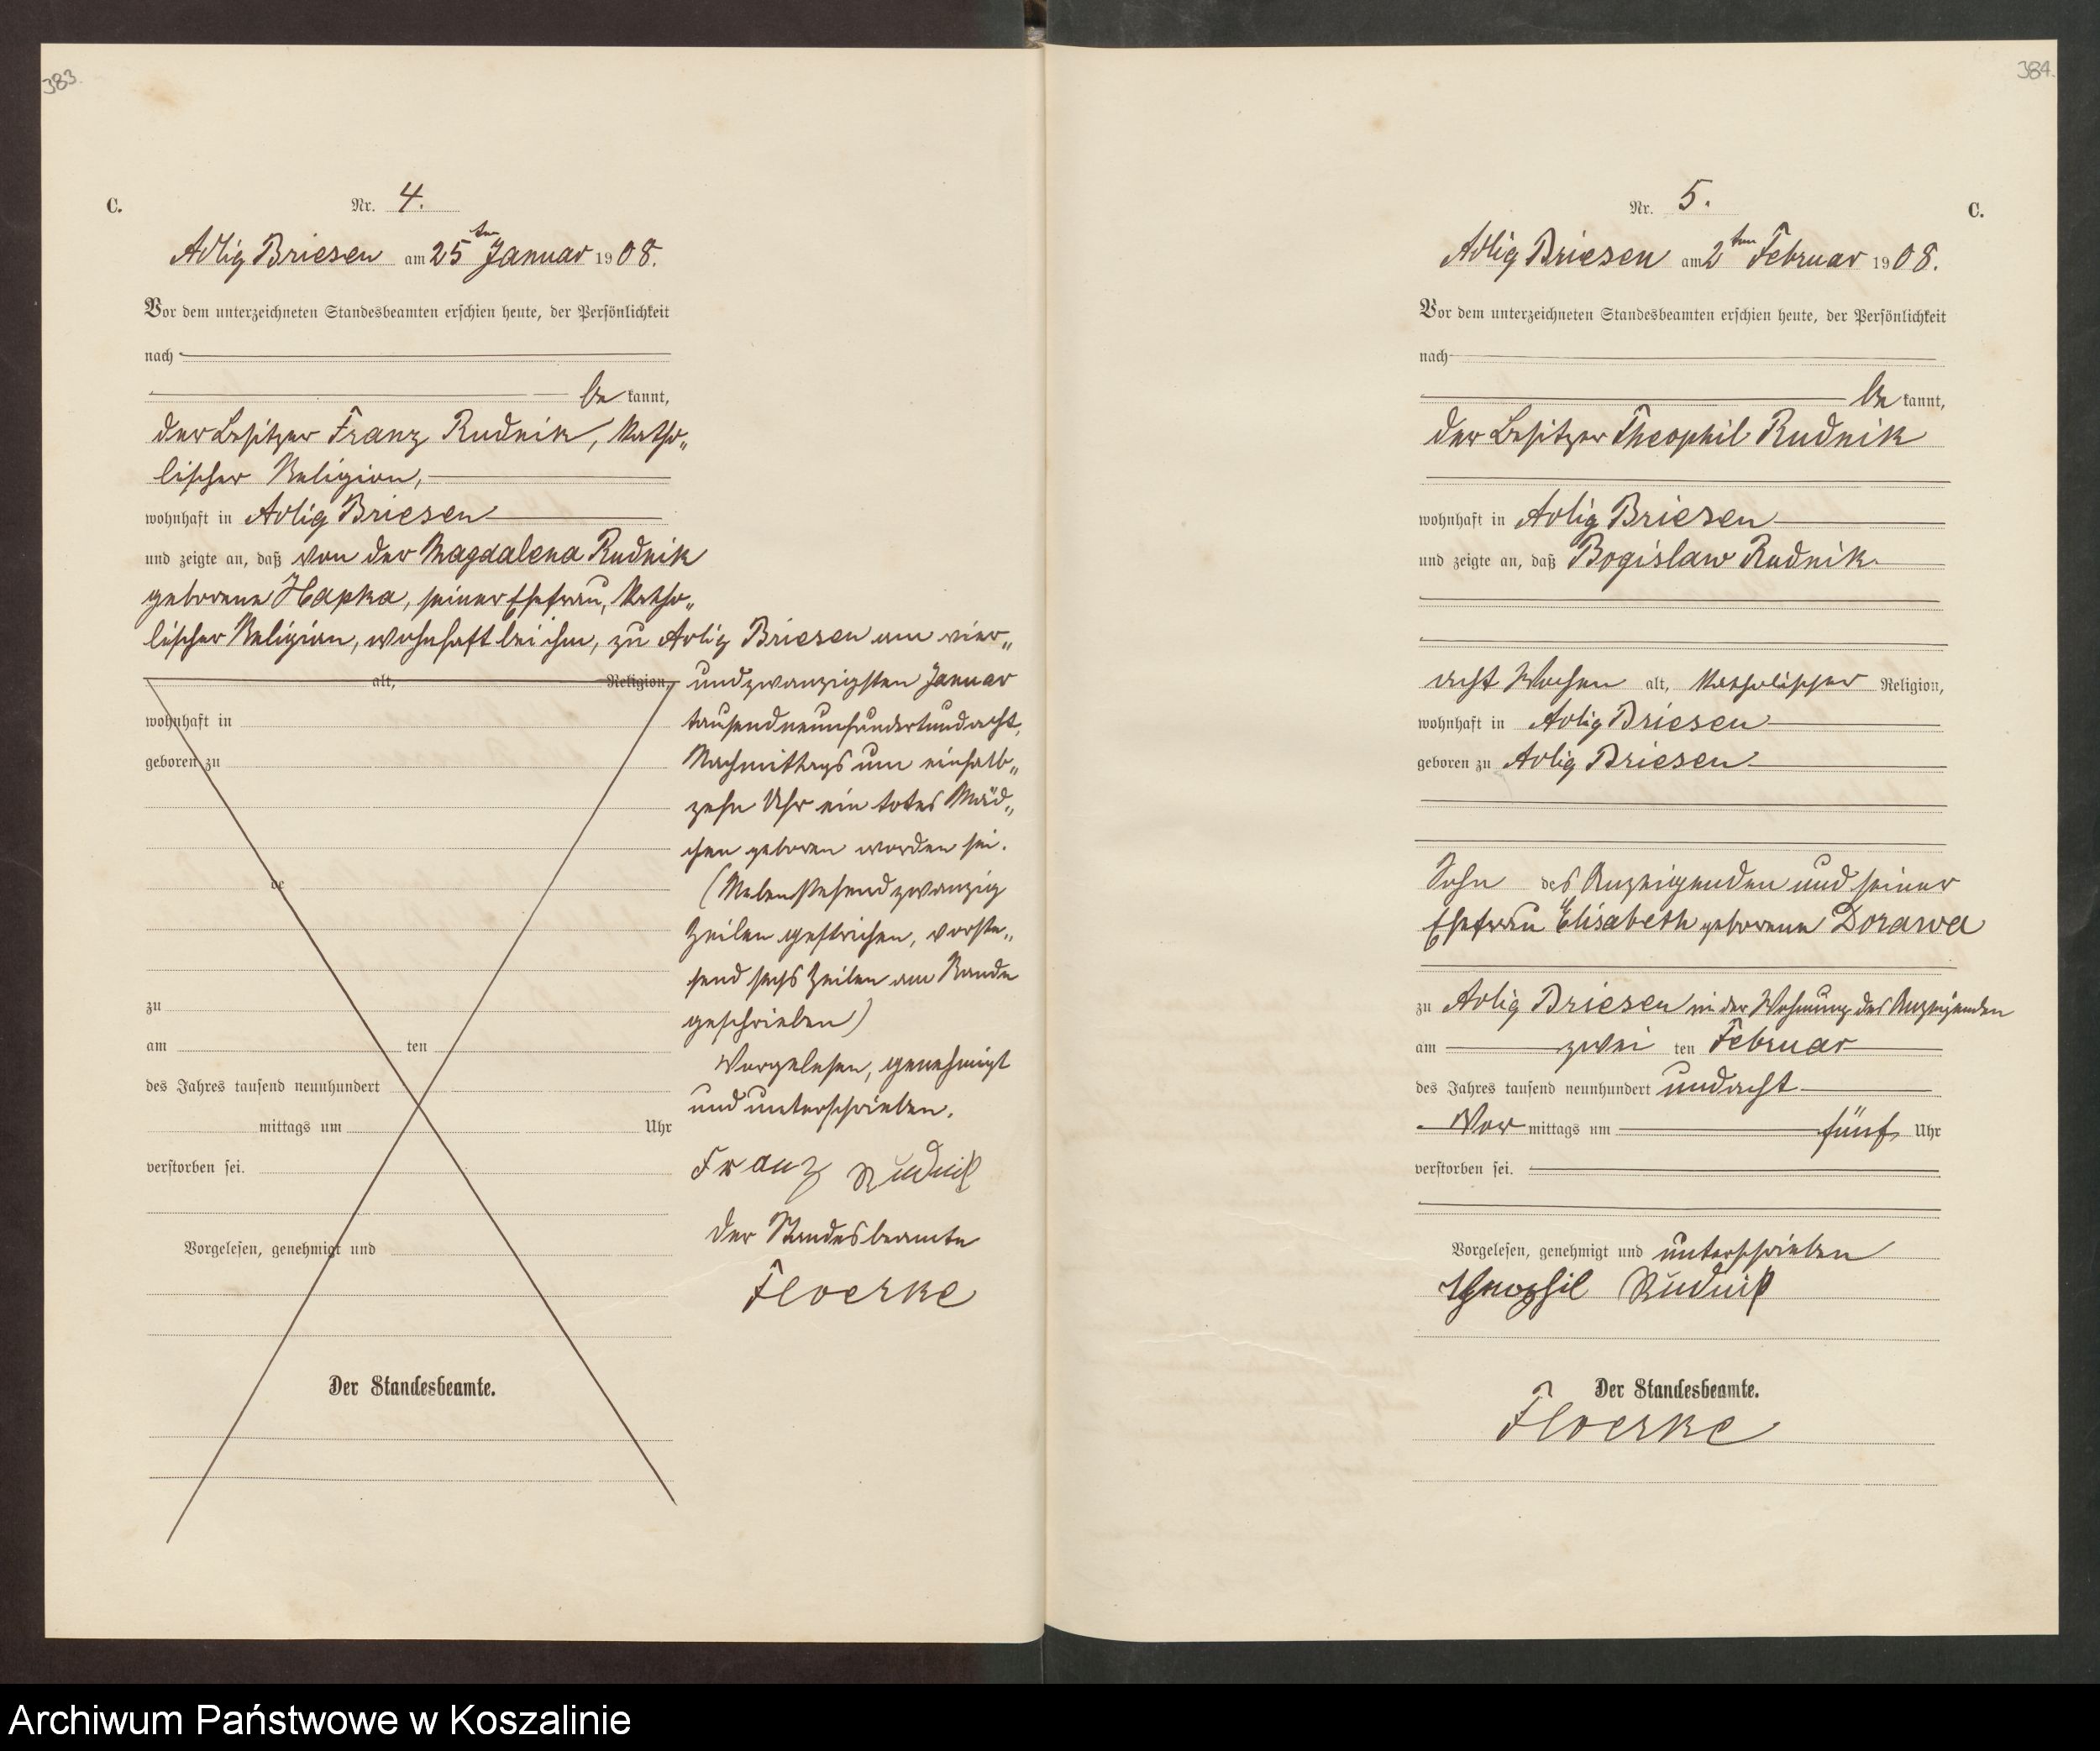 383.
C.
Nr. 4.
Adlig Briesen am 25ten Januar 1908.
Vor dem unterzeichneten Standesbeamten erschien heute, der Persönlichkeit
nach
be kannt,
der Besitzer Franz Rudnik, katho„
lischer Religion,
wohnhaft in Adlig Briesen
und zeigte an, daß von der Magdalena Rudnik
geborene Hapka, seiner Ehefrau, katho„
lischer Religion, wohnhaft bei ihm, zu Adlig Briesen am vier„
alt, Religion, undzwanzigsten Januar
wohnhaft in tausendneunhundertundacht,
geboren zu Nachmittags um einhalb„
zehn Uhr ein totes Mäd„
chen geboren worden sei.
de (Nebenstehend zwanzig
Zeilen gestrichen, vorste„
hend sechs Zeilen am Rande
zu geschrieben)
am ten Vorgelesen, genehmigt
des Jahres tausend neunhundert und unterschrieben.
mittags um Uhr
verstorben sei. Franz Rudnik
Vorgelesen, genehmigt und der Standesbeamte
Floerke
Der Standesbeamte.
384.
Nr. 5.
C.
Adlig Briesen am 2ten Februar 1908.
Vor dem unterzeichneten Standesbeamten erschien heute, der Persönlichkeit
nach
be kannt,
der Besitzer Theophil Rudnik
wohnhaft in Adlig Briesen
und zeigte an, daß Bogislaw Rudnik
acht Wochen alt, katholischer Religion,
wohnhaft in Adlig Briesen
geboren zu Adlig Briesen
Sohn des Anzeigenden und seiner
Ehefrau Elisabeth geborene Dorawa
zu Adlig Briesen in der Wohnung des Anzeigenden
am zwei ten Februar
des Jahres tausend neunhundert undacht
Vor mittags um fünf Uhr
verstorben sei.
Vorgelesen, genehmigt und unterschrieben
Theophil Rudnik
Der Standesbeamte.
Floerke
Archiwum Państwowe w Koszalinie